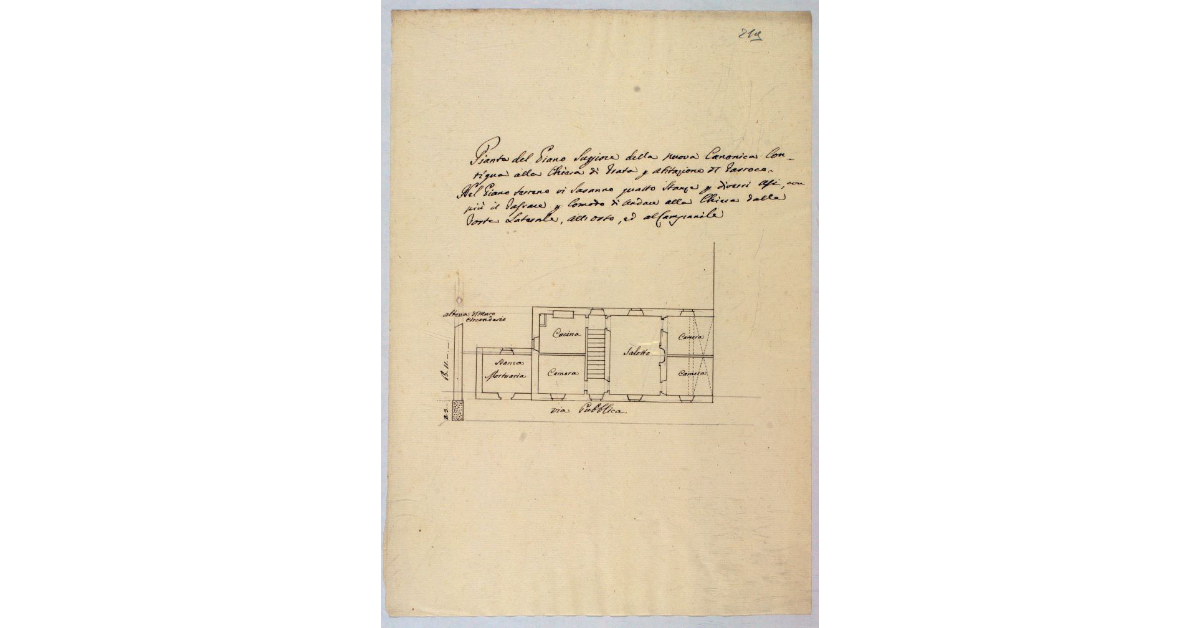 Pianta del Piano Supiore della nuova Canonica Con-
tigua alla Chiesa di Prata p abitazione del Parroco.
Nel Piano terreno vi saranno quatto Stanze p diversi usi, con
più il Passare p Comodo di andare alla Chiesa dalla
Porta Laterale, all'orto, ed al Campanile
altezza del muro
Circondario
Cucina
Camera
Salotto
Stanza
Mortuaria
Camera
Camera
B. 11.
B. 2.
Via Pubblica